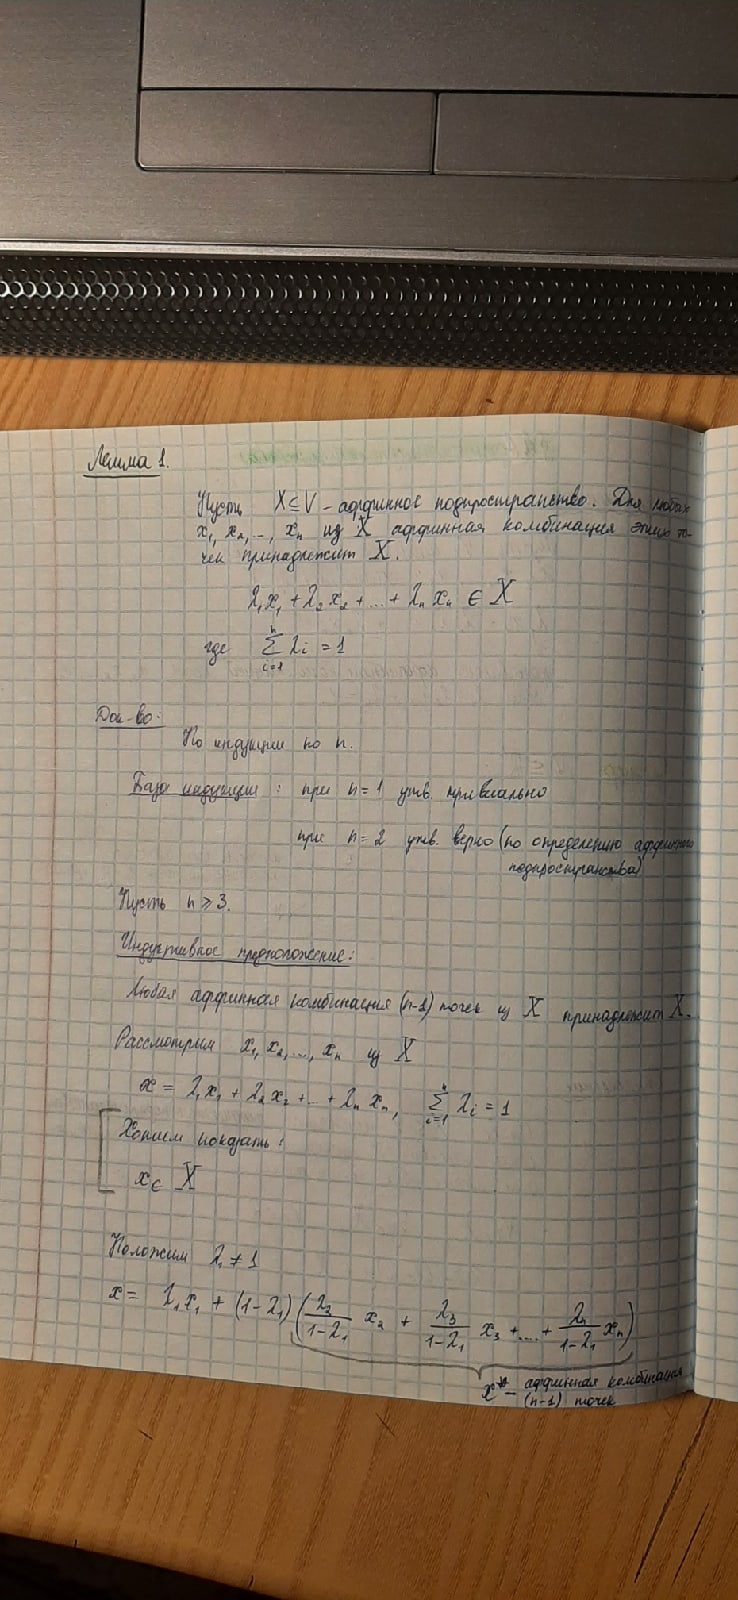 Лемма 1.
Пусть X ⊆ V - аффинное подпространство. Для любых
x₁, x₂, ..., xₙ из X аффинная комбинация этих то-
чек принадлежит X.
λ₁x₁ + λ₂x₂ + ... + λₙxₙ ∈ X
где ∑ᵢ₌₁ⁿ λᵢ = 1
Док-во:
По индукции по n.
База индукции: при n = 1 утв. тривиально
при n = 2 утв. верно (по определению аффинного
подпространства)
Пусть n ⩾ 3.
Индуктивное предположение:
Любая аффинная комбинация (n-1) точек из X принадлежит X.
Рассмотрим x₁, x₂, ..., xₙ из X
x = λ₁x₁ + λ₂x₂ + ... + λₙxₙ, ∑ᵢ₌₁ⁿ λᵢ = 1
Хотим показать:
x ∈ X
Положим λ₁ ≠ 1
x = λ₁x₁ + (1-λ₁)(λ₂/(1-λ₁) x₂ + λ₃/(1-λ₁) x₃ + .... + λₙ/(1-λ₁) xₙ)
x* - аффинная комбинация
(n-1) точек